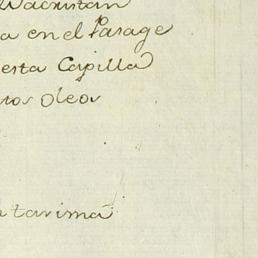 a en el Parage
esta Capilla
tos oleos
a tarima